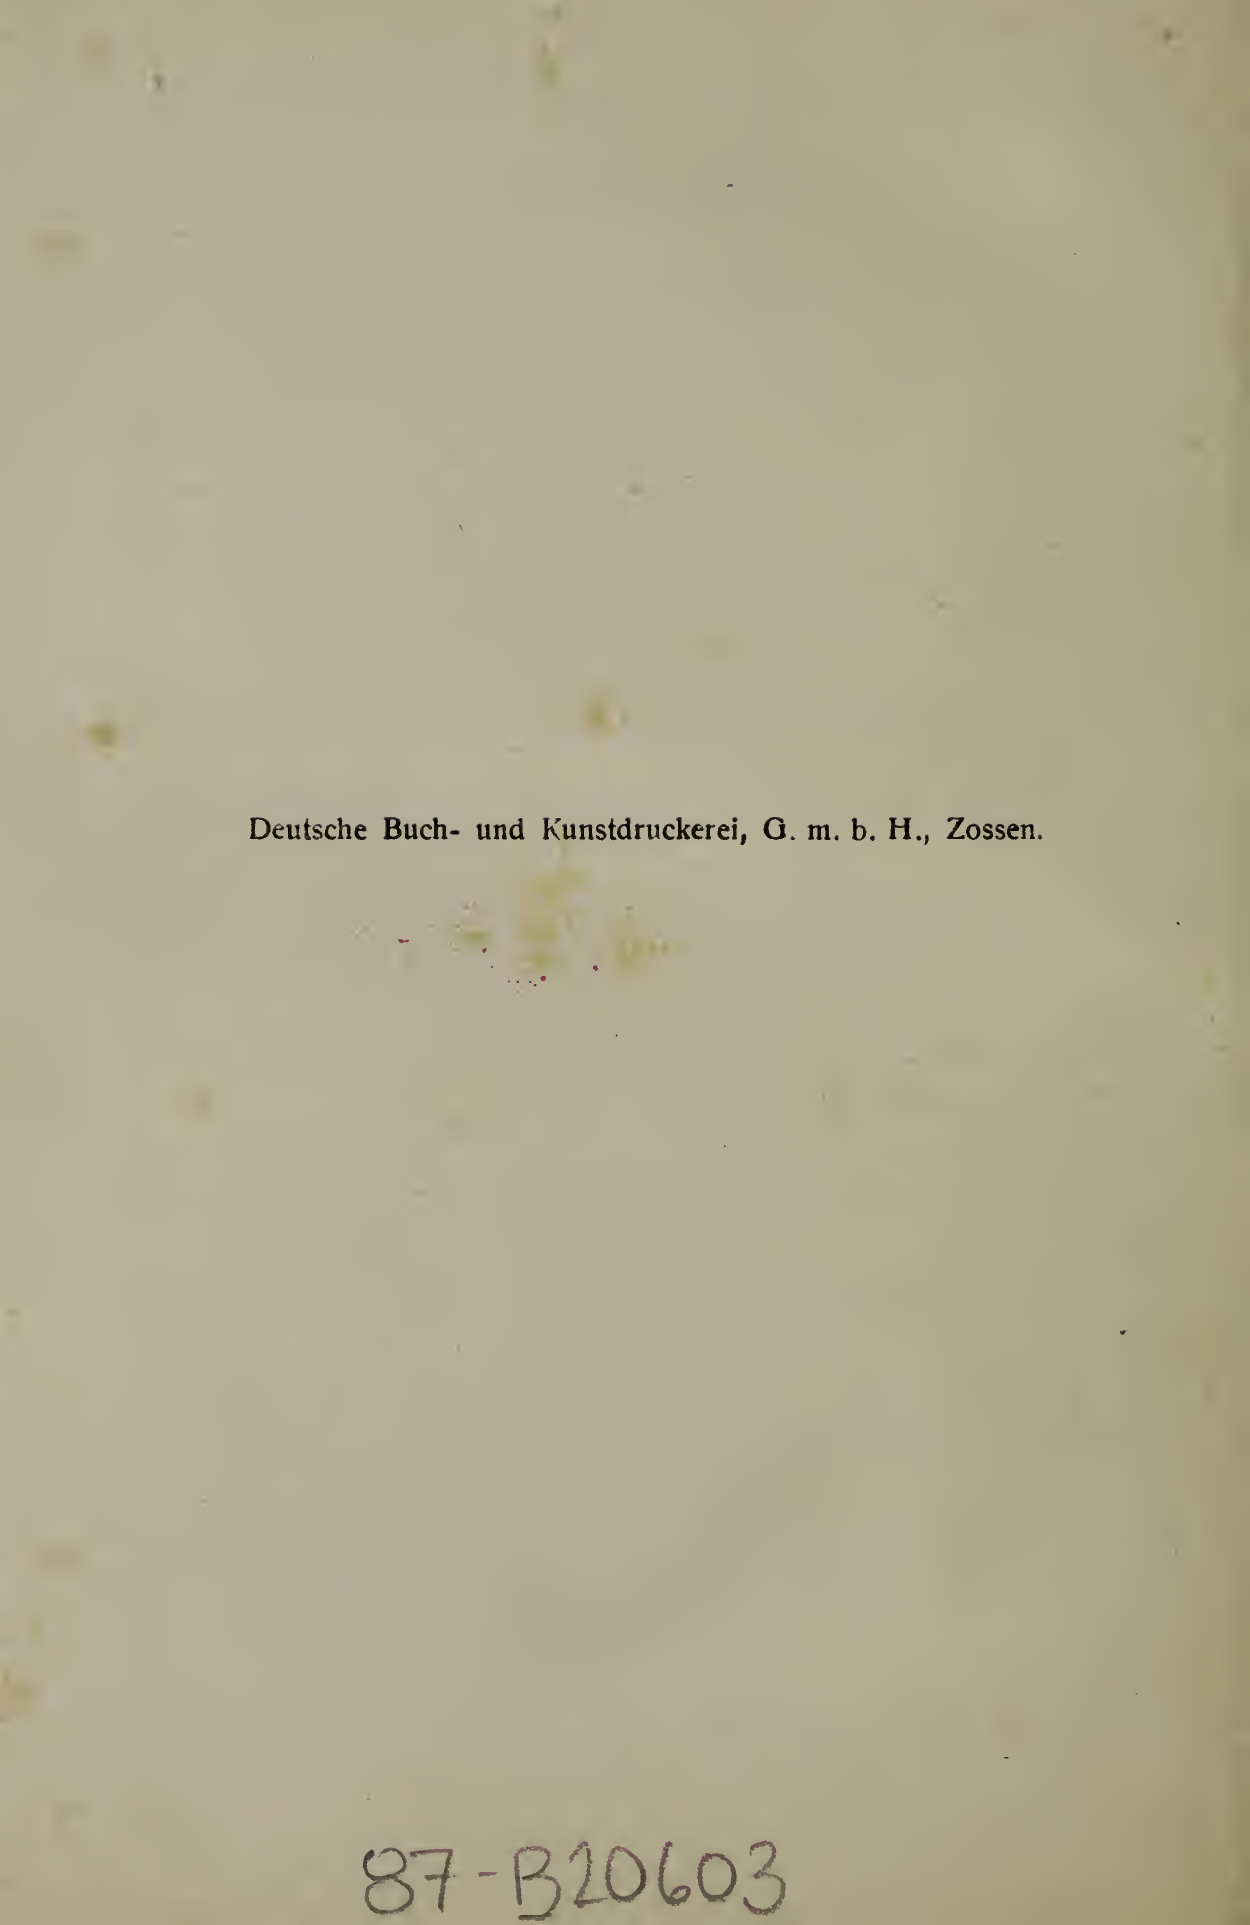 Deutsche Buch- und Kunstdruckerei, G. m. b. H., Zossen.
87-B20603